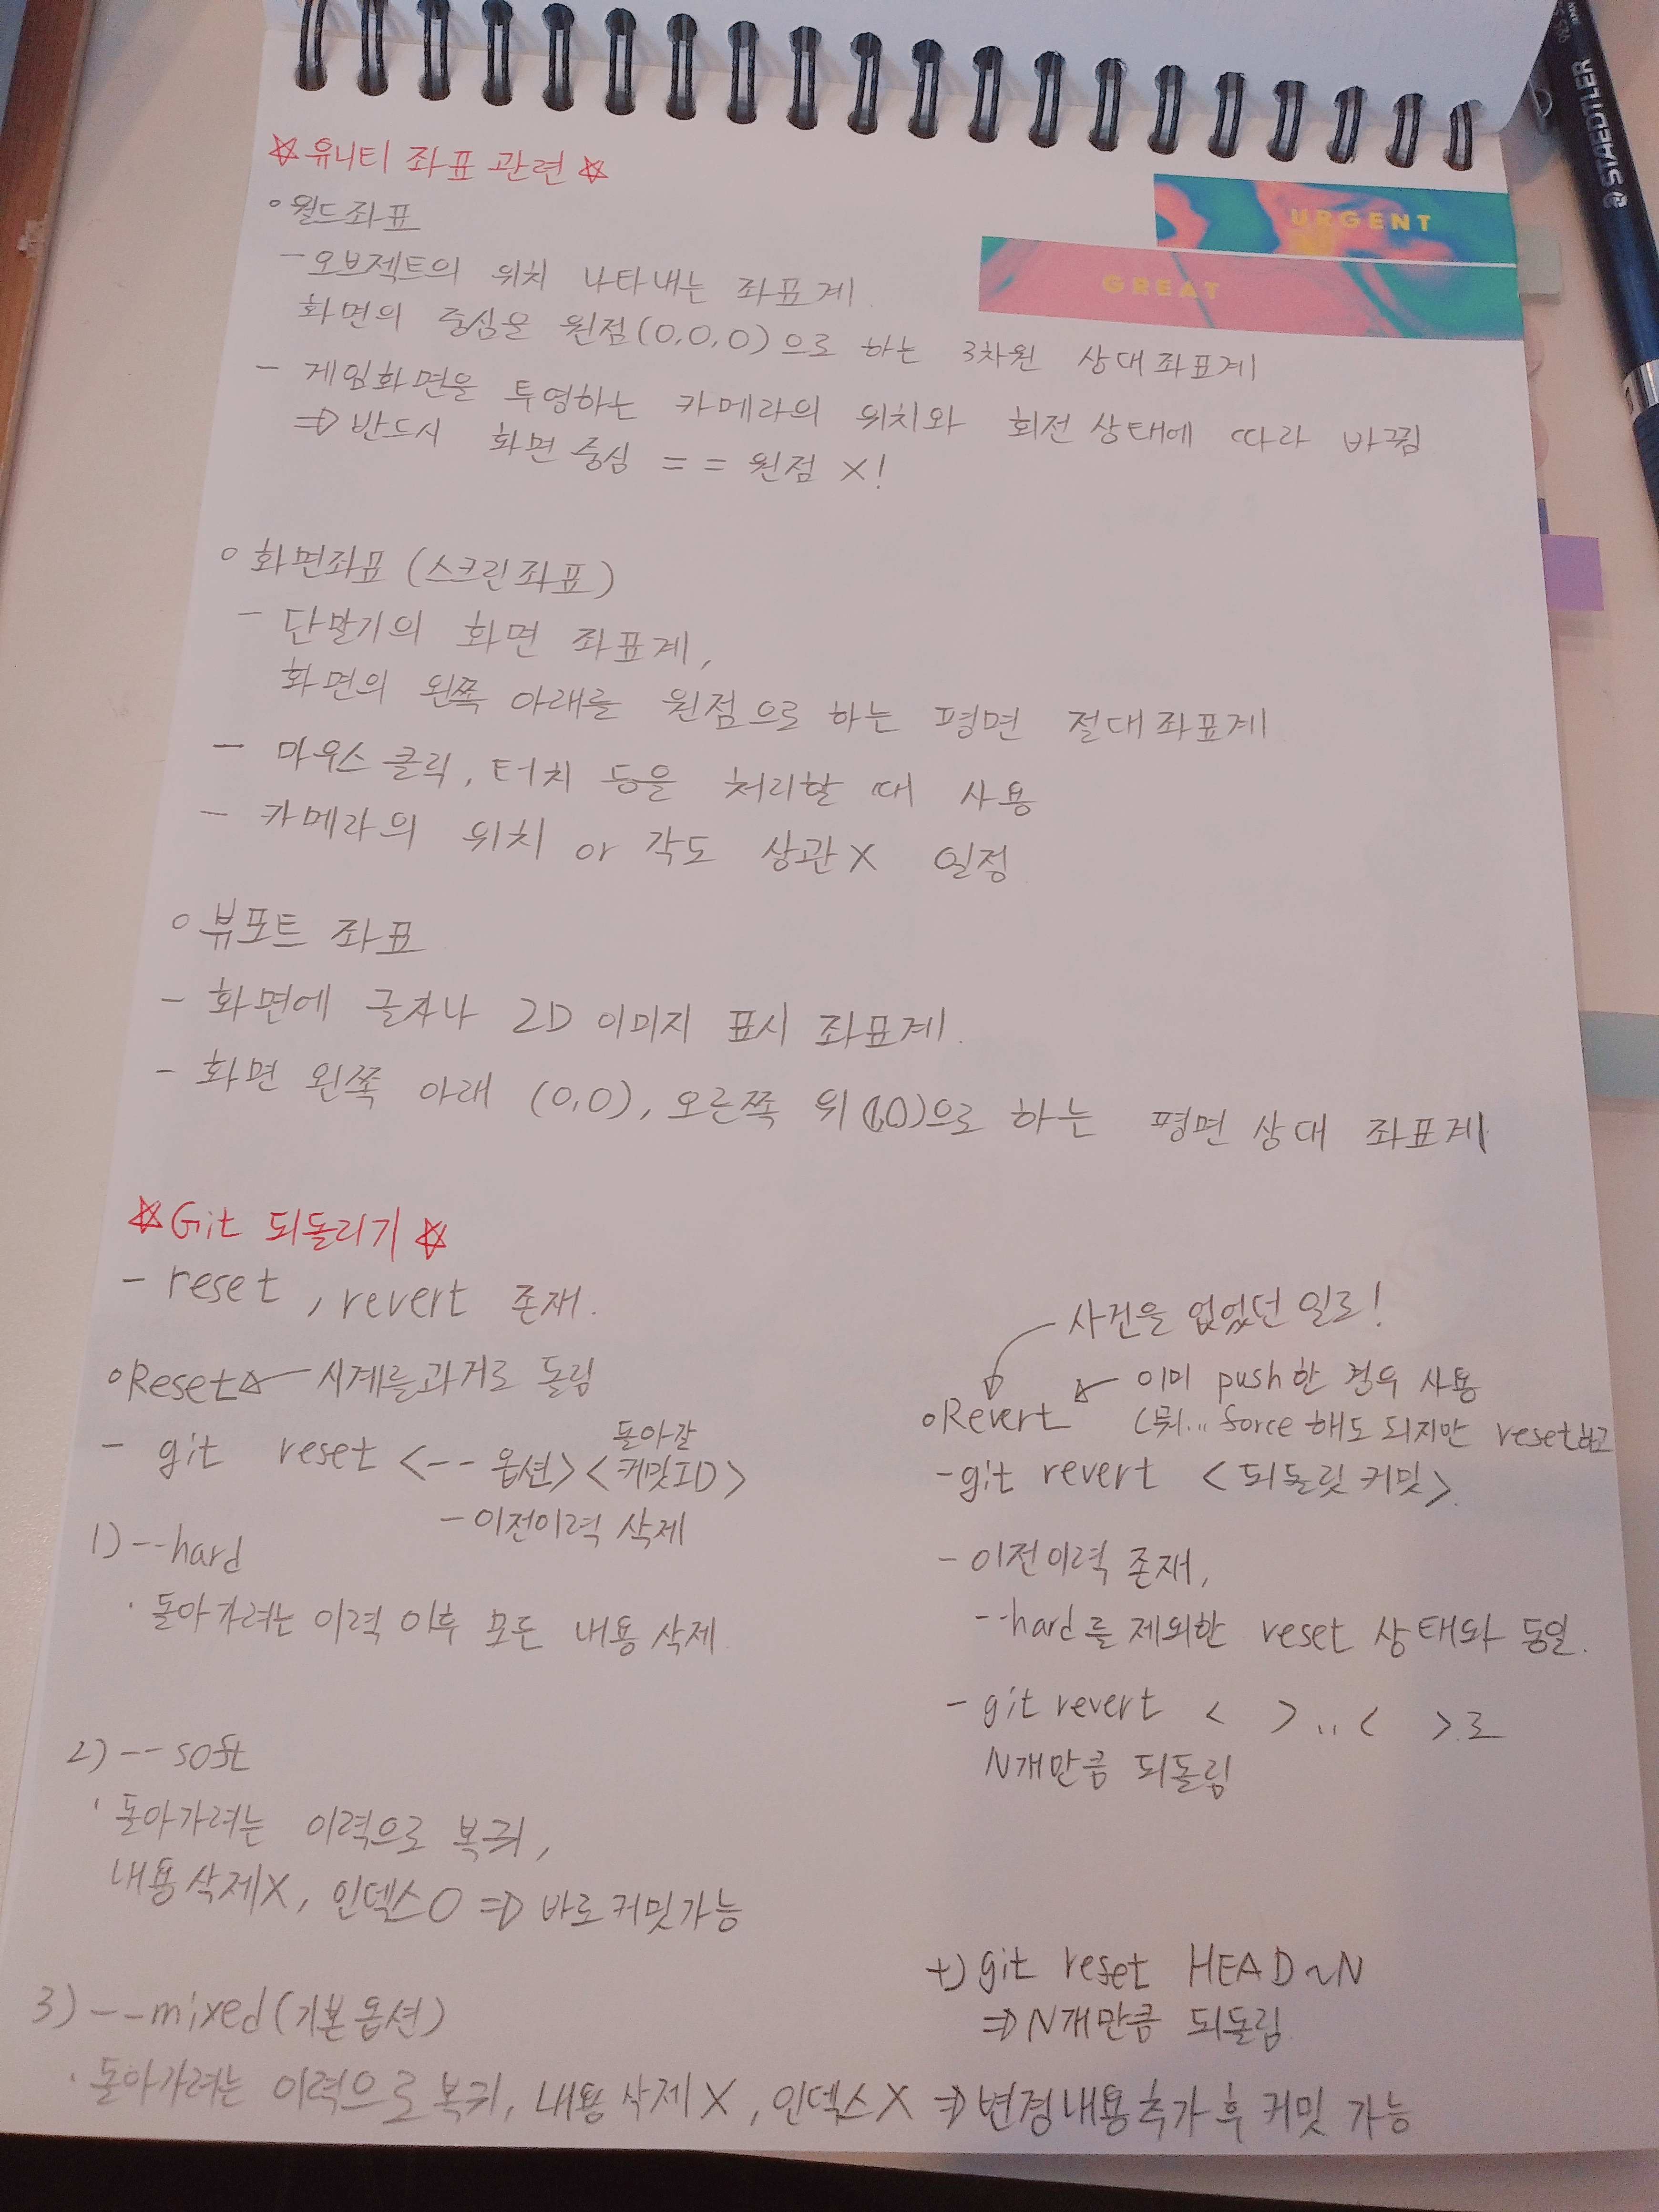 ☆유니티 좌표 관련☆
URGENT
GREAT
○월드좌표
- 오브젝트의 위치 나타내는 좌표계.
화면의 중심을 원점(0,0,0)으로 하는 3차원 상대좌표계
- 게임화면을 투영하는 카메라의 위치와 회전상태에 따라 바뀜
=> 반드시 화면 중심 == 원점 X!
○ 화면좌표 (스크린좌표)
- 단말기의 화면 좌표계,
화면의 왼쪽 아래를 원점으로 하는 평면 절대좌표계
- 마우스클릭, 터치 등을 처리할 때 사용
- 카메라의 위치 or 각도 상관X 일정
○ 뷰포트 좌표
- 화면에 글자나 2D 이미지 표시 좌표계.
- 화면 왼쪽 아래 (0,0), 오른쪽 위 으로 하는 평면 상대 좌표계
☆Git 되돌리기☆
- reset, revert 존재.
○Reset ← 시계를 과거로 돌림
- git reset <--옵션><돌아갈 커밋ID>
- 이전이력 삭제
1) --hard
· 돌아가려는 이력 이후 모든 내용 삭제.
2) --soft
· 돌아가려는 이력으로 복귀,
내용 삭제X, 인덱스O => 바로 커밋가능
3) --mixed(기본옵션)
· 돌아가려는 이력으로 복귀, 내용삭제X, 인덱스X => 변경내용 추가 후 커밋 가능
사건을 없었던 일로!
○Revert ← 이미 push한 경우 사용
(뭐... force 해도 되지만 reset하고
- git revert <되돌릴 커밋>.
- 이전이력 존재,
--hard를 제외한 reset 상태와 동일.
- git revert < >..< >로
N개만큼 되돌림
+) git reset HEAD~N
=> N개만큼 되돌림
STAEDTLER